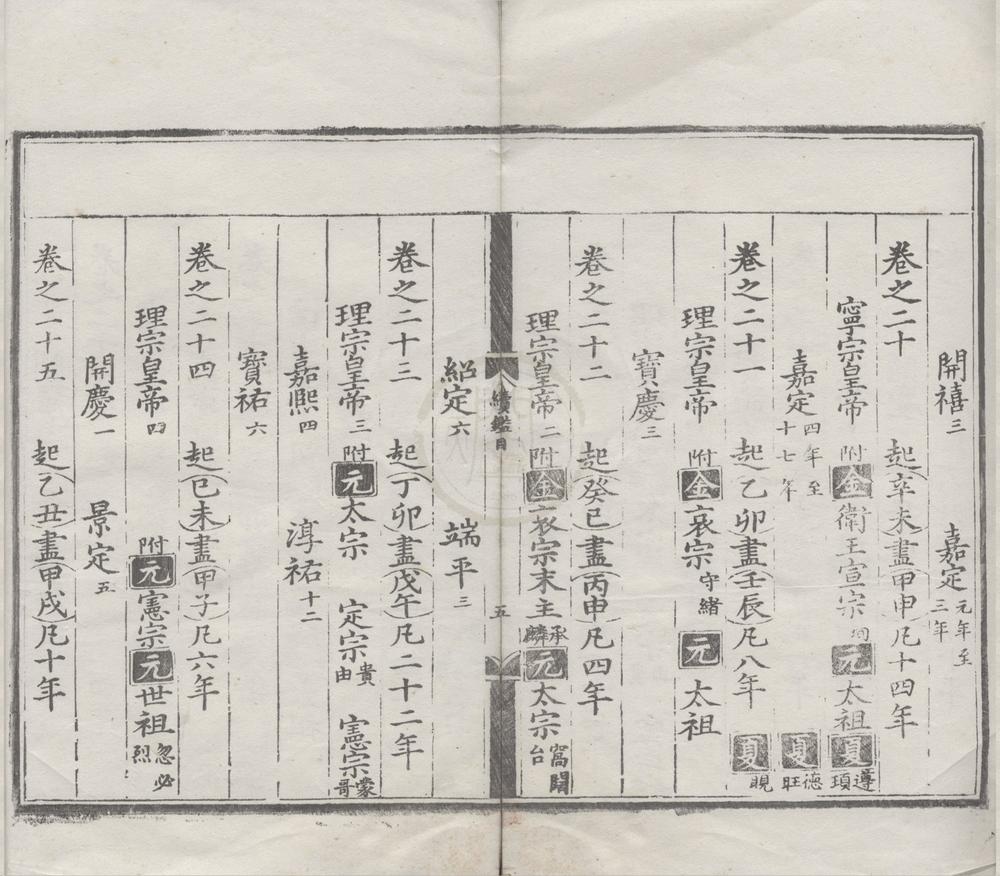 開禧三 嘉定元年至三年
卷之二十 起辛未盡甲申凡十四年
寧宗皇帝 附金衛王宣宗珣元太祖夏遵頊
嘉定四年至十七年 夏德旺
卷之二十一 起乙卯盡壬辰凡八年 夏睍
理宗皇帝 附金哀宗守緒元太祖
寶慶三
卷之二十二 起癸巳盡丙申凡四年
理宗皇帝二 附金哀宗末主承麟元太宗窩闊台
續鑑目 五
紹定六 端平三
卷之二十三 起丁卯盡戊午凡二十二年
理宗皇帝三 附元太宗 定宗貴由 憲宗蒙哥
嘉熙四 淳祐十二
寶祐六
卷之二十四 起己未盡甲子凡六年
理宗皇帝四 附元憲宗元世祖忽必烈
開慶一 景定五
卷之二十五 起乙丑盡甲戌凡十年